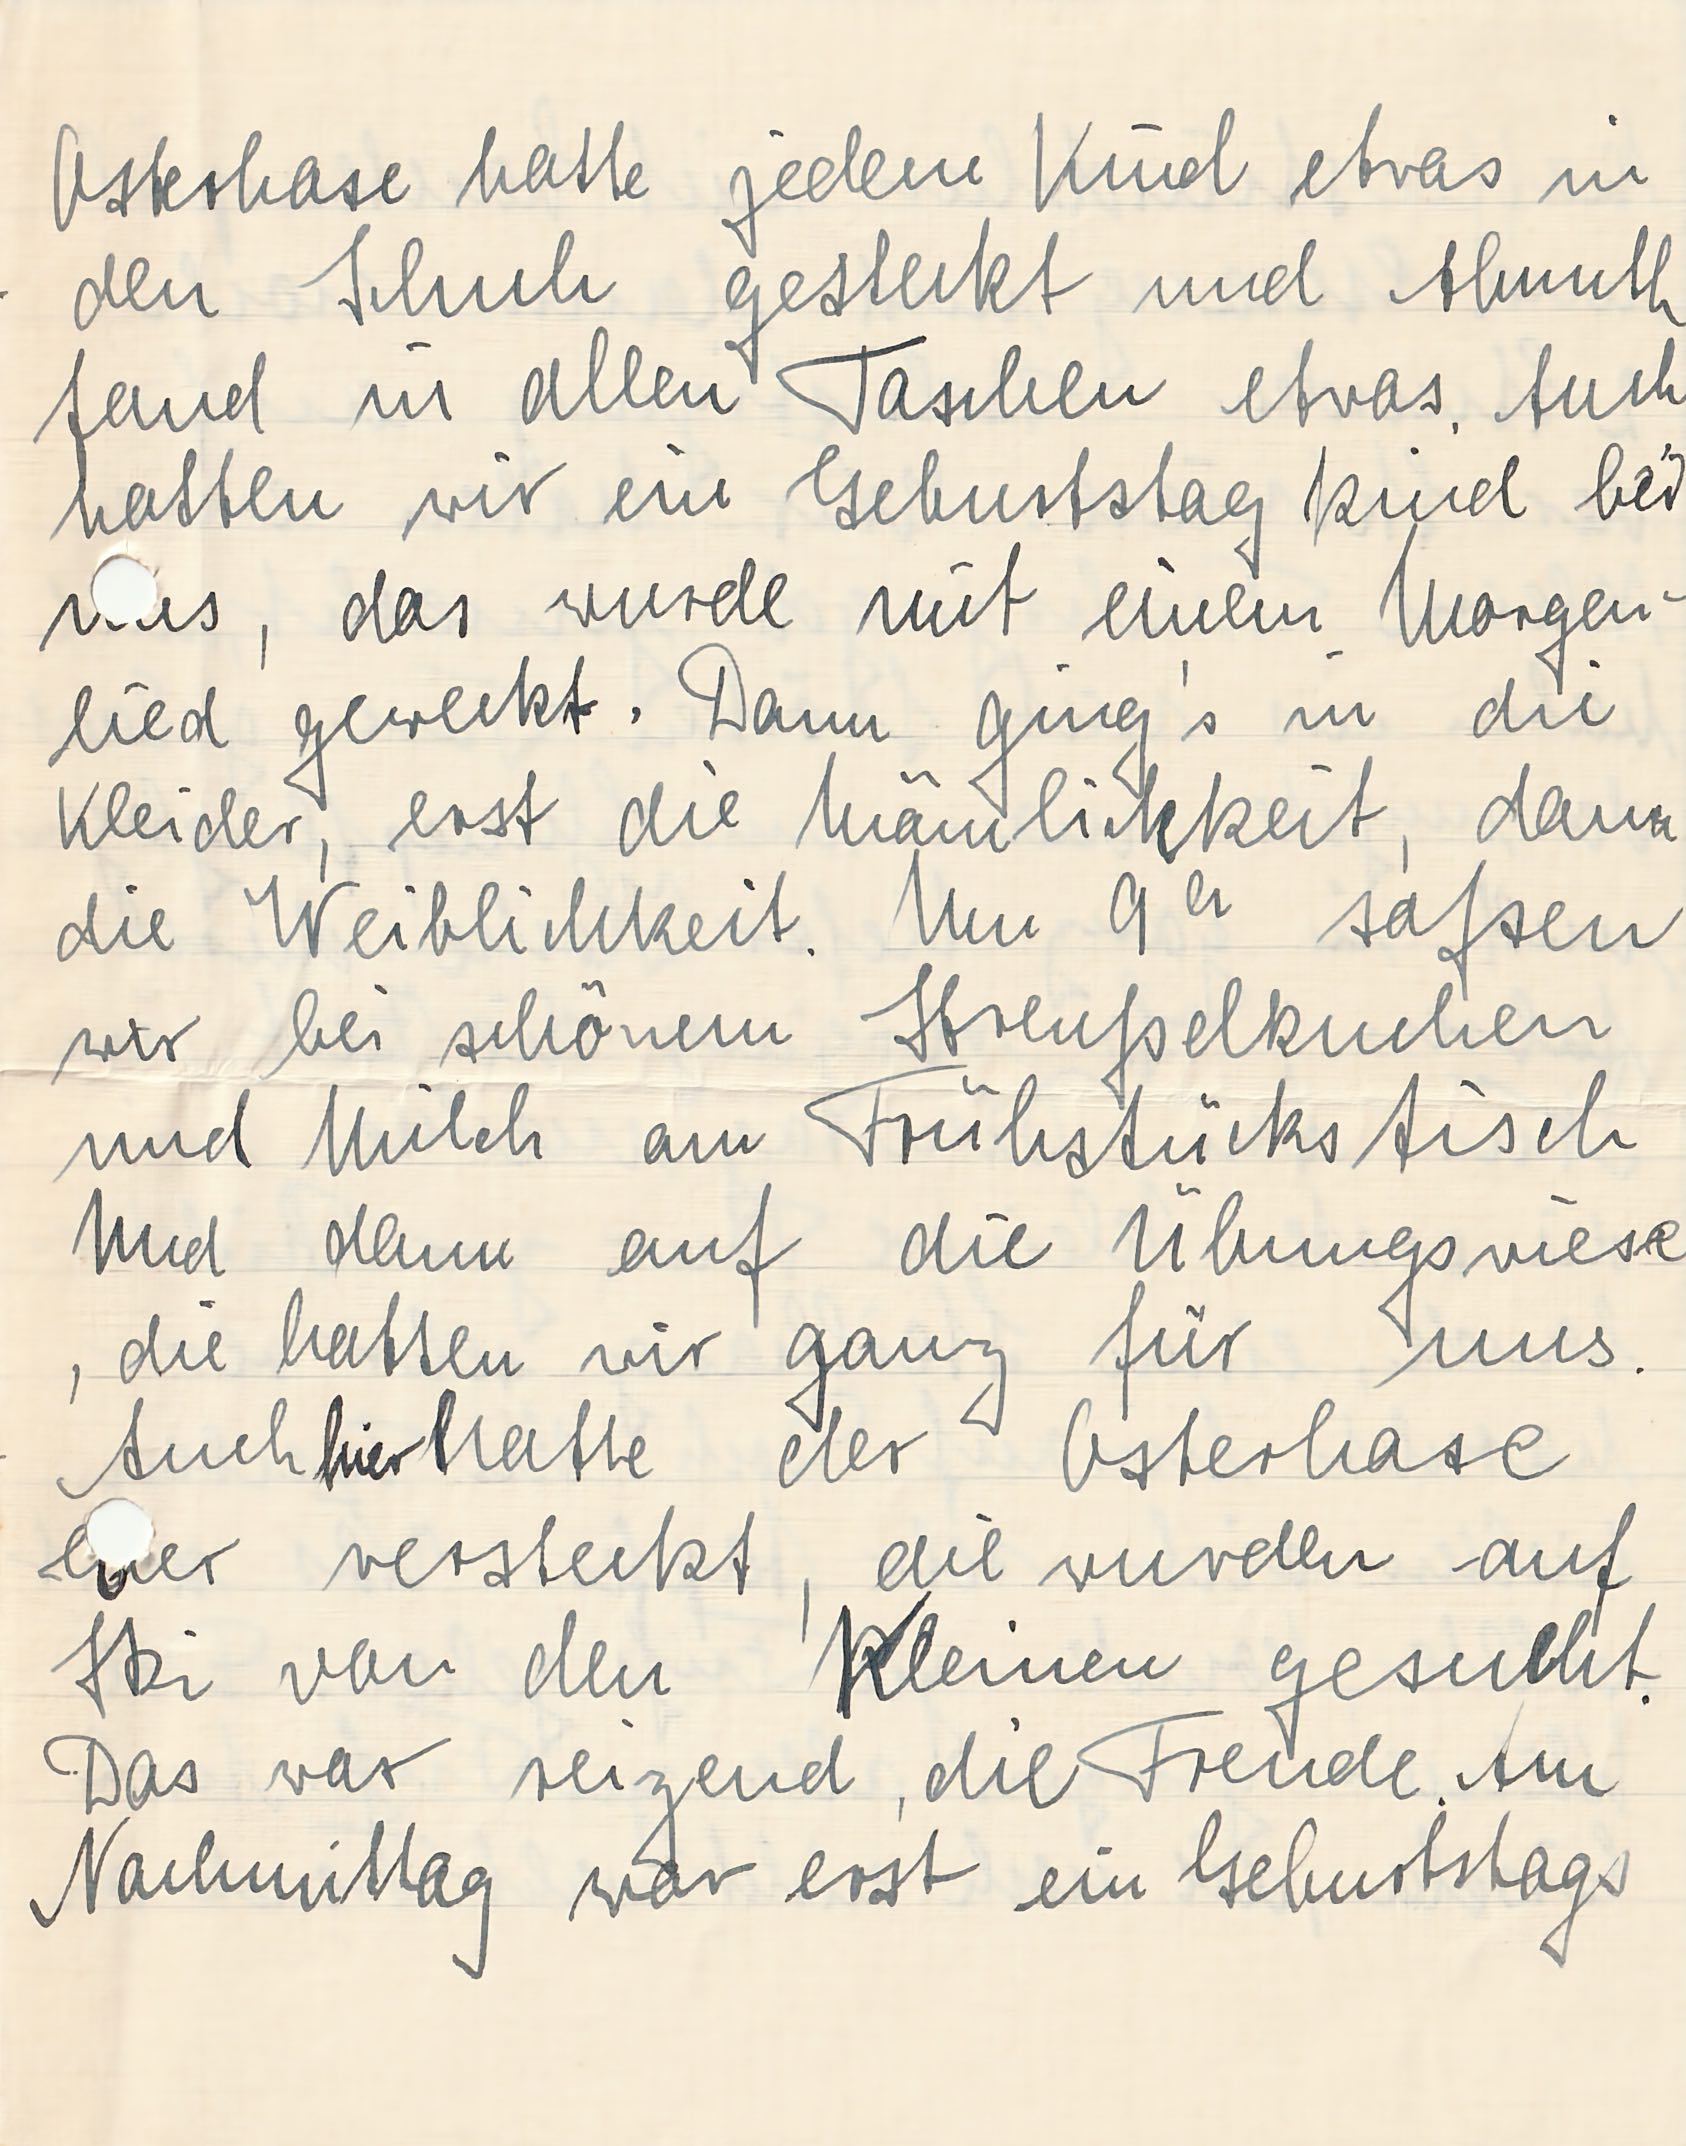 Osterhase hatte jedem Kind etwas in
den Schuh gesteckt und Almuth
fand in allen Taschen etwas. Auch
hatten wir ein Geburtstag kind bei
uns, das wurde mit einem Morgen-
lied geweckt. Dann ging's in die
Kleider, erst die Mämlichkeit, dann
die Weiblichkeit. Um 9 h safsen
wir bei schönem Streufselkuchen
und Milch am Frühstückstisch
Und dann auf die Übungswiese
, die hatten wir ganz für uns.
Auch hier hatte der Osterhase
eier versteckt, die wurden auf
Ski von den Kleinen gesucht.
Das war reizend, die Freude. Am
Nachmittag war erst ein Geburtstags